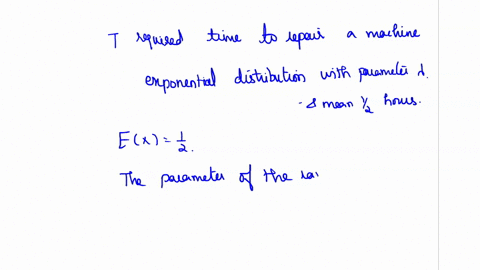 T required time to repair a machine
exponential distribution with parameter λ.
& mean 1/2 hours.
E(x) = 1/2.
The parameter of the